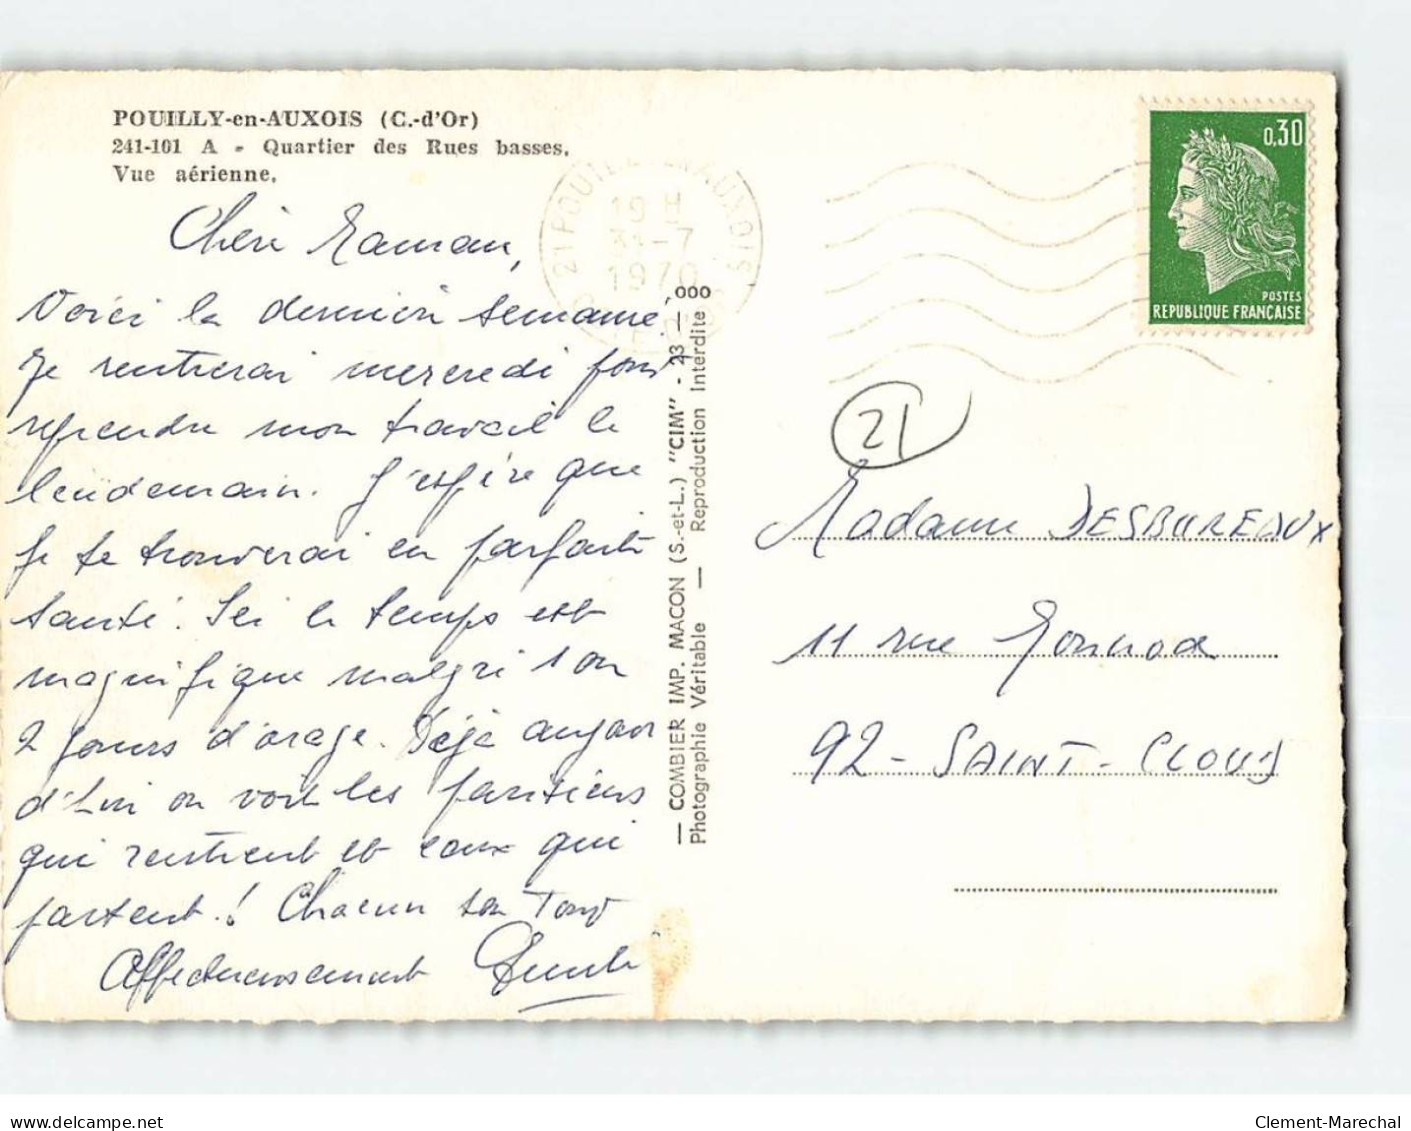 POUILLY-en-AUXOIS (C.-d'Or)
241-101 A - Quartier des Rues basses.
Vue aérienne.
Chère Maman,
Voici la dernière semaine.
Je rentrerai mercredi pour
reprendre mon travail le
lendemain. J'espère que
je te trouverai en parfaite
santé. Ici le temps est
magnifique malgré 1 ou
2 jours d'orage. Déjà aujour
d'hui on voit les parisiens
qui rentrent et ceux qui
partent! Chacun son tour
Affectueusement
21 POUILLY-EN-AUXOIS
19 H
31-7
1970
COMBIER IMP. MACON (S.-et-L.) "CIM" - 23 - 000
Photographie Véritable — Reproduction Interdite
0,30
POSTES
REPUBLIQUE FRANÇAISE
21
Madame DESBUREAUX
11 rue Gounod
92 - SAINT - CLOUD
www.delcampe.net
Clement-Marechal